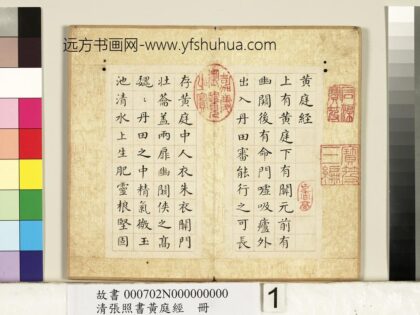 远方书画网-www.yfshuhua.com
黃庭經
上有黃庭下有關元前有
幽闕後有命門噓吸廬外
出入丹田審能行之可長
存黃庭中人衣朱衣關門
壯籥蓋兩扉幽闕俠之高
巍〻丹田之中精氣微玉
池清水上生肥靈根堅固
石渠寶笈
寶笈三編
故書 000702N000000000
清張照書黃庭經 冊
1